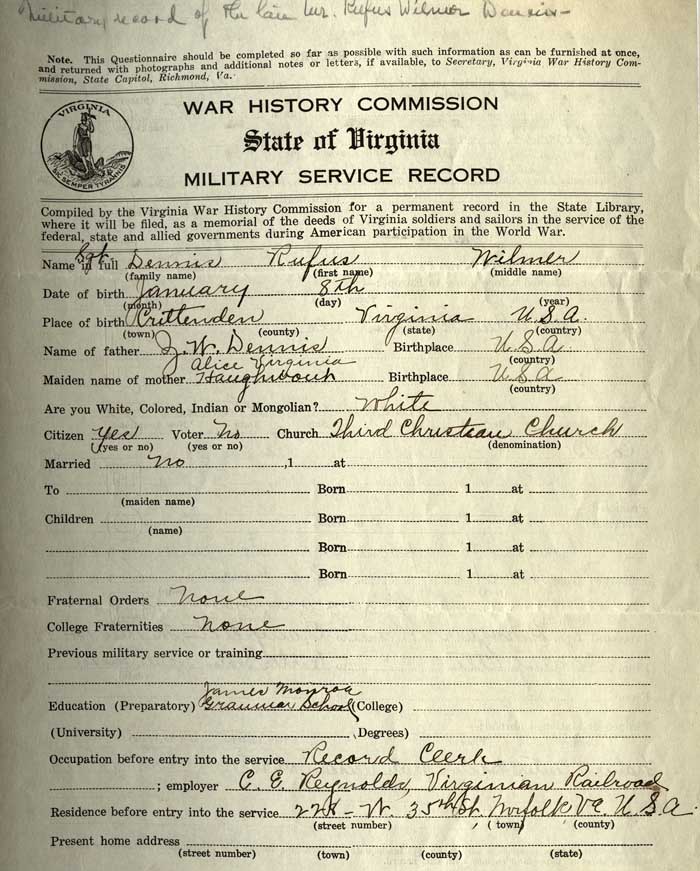 Military record of the late Mr. Rufus Wilmer Dennis-
Note. This Questionnaire should be completed so far as possible with such information as can be furnished at once,
and returned with photographs and additional notes or letters, if available, to Secretary, Virginia War History Com-
mission, State Capitol, Richmond, Va.
VIRGINIA
SIC SEMPER TYRANNIS
WAR HISTORY COMMISSION
State of Virginia
MILITARY SERVICE RECORD
Compiled by the Virginia War History Commission for a permanent record in the State Library,
where it will be filed, as a memorial of the deeds of Virginia soldiers and sailors in the service of the
federal, state and allied governments during American participation in the World War.
Sgt
Name in full Dennis Rufus Wilmer
(family name) (first name) (middle name)
Date of birth January 8th
(month) (day) (year)
Place of birth Crittenden Virginia U.S.A
(town) (county) (state) (country)
Name of father J. W. Dennis Birthplace U.S.A
(country)
Alice Virginia
Maiden name of mother Birthplace U.S.A
(country)
Are you White, Colored, Indian or Mongolian? White
Citizen Yes Voter No Church Third Christian Church
(yes or no) (yes or no) (denomination)
Married no ,1 at
To Born 1 at
(maiden name)
Children Born 1 at
(name)
Born 1 at
Born 1 at
Fraternal Orders None
College Fraternities None
Previous military service or training
James Monroe
Education (Preparatory) Grammar School (College)
(University) Degrees)
Occupation before entry into the service Record Clerk
; employer C. E. Reynolds, Virginian Railroad
Residence before entry into the service W. 35th St. Norfolk Va. U.S.A.
(street number) (town) (county)
Present home address
(street number) (town) (county) (state)